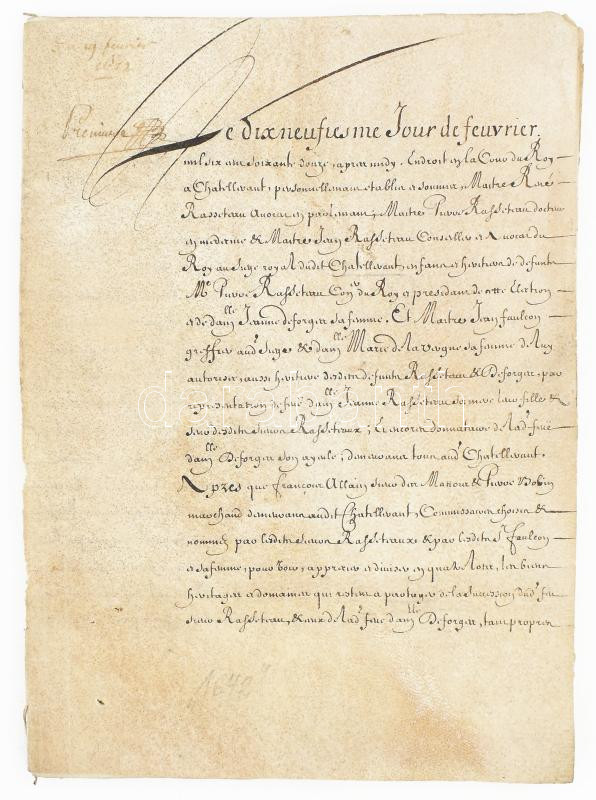 Du 19 fevrier
1672
Premiere
Le dixneufiesme Jour de feuvrier
mil six cens soixante douze, apres midy, Endroit en la Cour du Roy
a Chatellerant, personnellement establis et soumis, Maitre René
Rasseteau Avocat en parlement, Maitre Pierre Rasseteau docteur
en medecine & Maitre Jean Rasseteau Conseiller et Avocat du
Roy au siege royal dudit Chatellerant, enfans et heritiers de defunts
Me Pierre Rasseteau Conr du Roy et president de cette Election
et de damlle Jeanne deforges sa femme. Et Maitre Jean faulcon
greffier audt siege & damlle Marie de la vergne sa femme de luy
autorisée, aussi heritiere desdits defunts Rasseteau & Deforges, par
representation de feue damlle Jeanne Rasseteau sa mere leur fille &
sœur desdits sieurs Rasseteaux; Et encores donnataire de ladt feue
damlle Deforges son ayeule, demeurans tous audt Chatellerant.
Apres que françois Allain sieur des Massons & Pierre Bobin
marchand demeurans audit Chatellerant, Commissaires choisis &
nommez par lesdits sieurs Rasseteaux & par lesdits Sr faulcon
et sa femme, pour voir, apprecier et diviser en quatre lotes, les biens
heritages et domaines qui restent a partager de la succession dudt feu
sieur Rasseteau, & ceux de ladt feue damlle Deforges, tant propres
1672